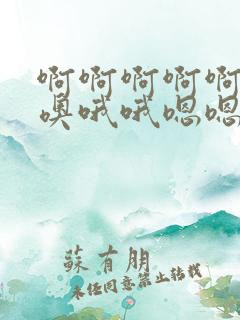 啊啊啊啊啊
噢哦哦嗯嗯
蘇有朋
未经同意禁止转载